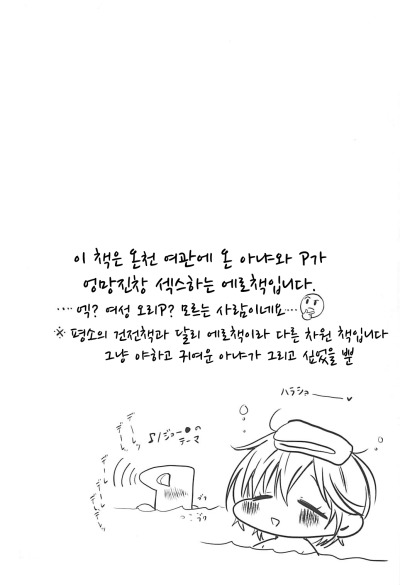 이 책은 온천 여관에 온 아냐와 P가
엉망진창 섹스하는 에로책입니다.
····엑? 여성 오리P? 모르는 사람이네요····
※ 평소의 건전책과 달리 에로책이라 다른 차원 책입니다
그냥 야하고 귀여운 아냐가 그리고 싶었을 뿐
ハラショー
♪ジョー●の
テーマ
デーレッ
デーレッ